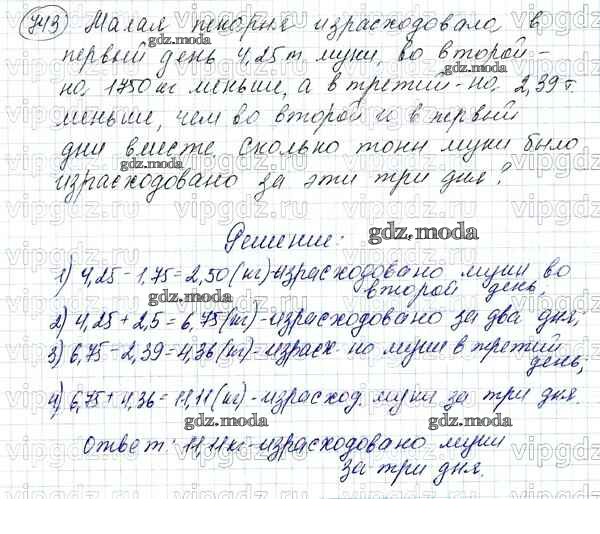 743 Малая пекарня израсходовала в
первый день 4,25т муки, во второй -
на 1750 кг меньше, а в третий - на 2,39 т.
меньше, чем во второй и в первый
дни вместе. Сколько тонн муки было
израсходовано за эти три дня?
Решение:
1) 4,25 - 1,75 = 2,50 (кг) - израсходовано муки во
второй день,
2) 4,25 + 2,5 = 6,75 (кг) - израсходовано за два дня;
3) 6,75 - 2,39 = 4,36 (кг) - израсх-но муки в третий
день;
4) 6,75 + 4,36 = 11,11 (кг) - израсход. муки за три дня.
Ответ: 11,11 кг - израсходовано муки
за три дня.
gdz.moda
vipgdz.ru